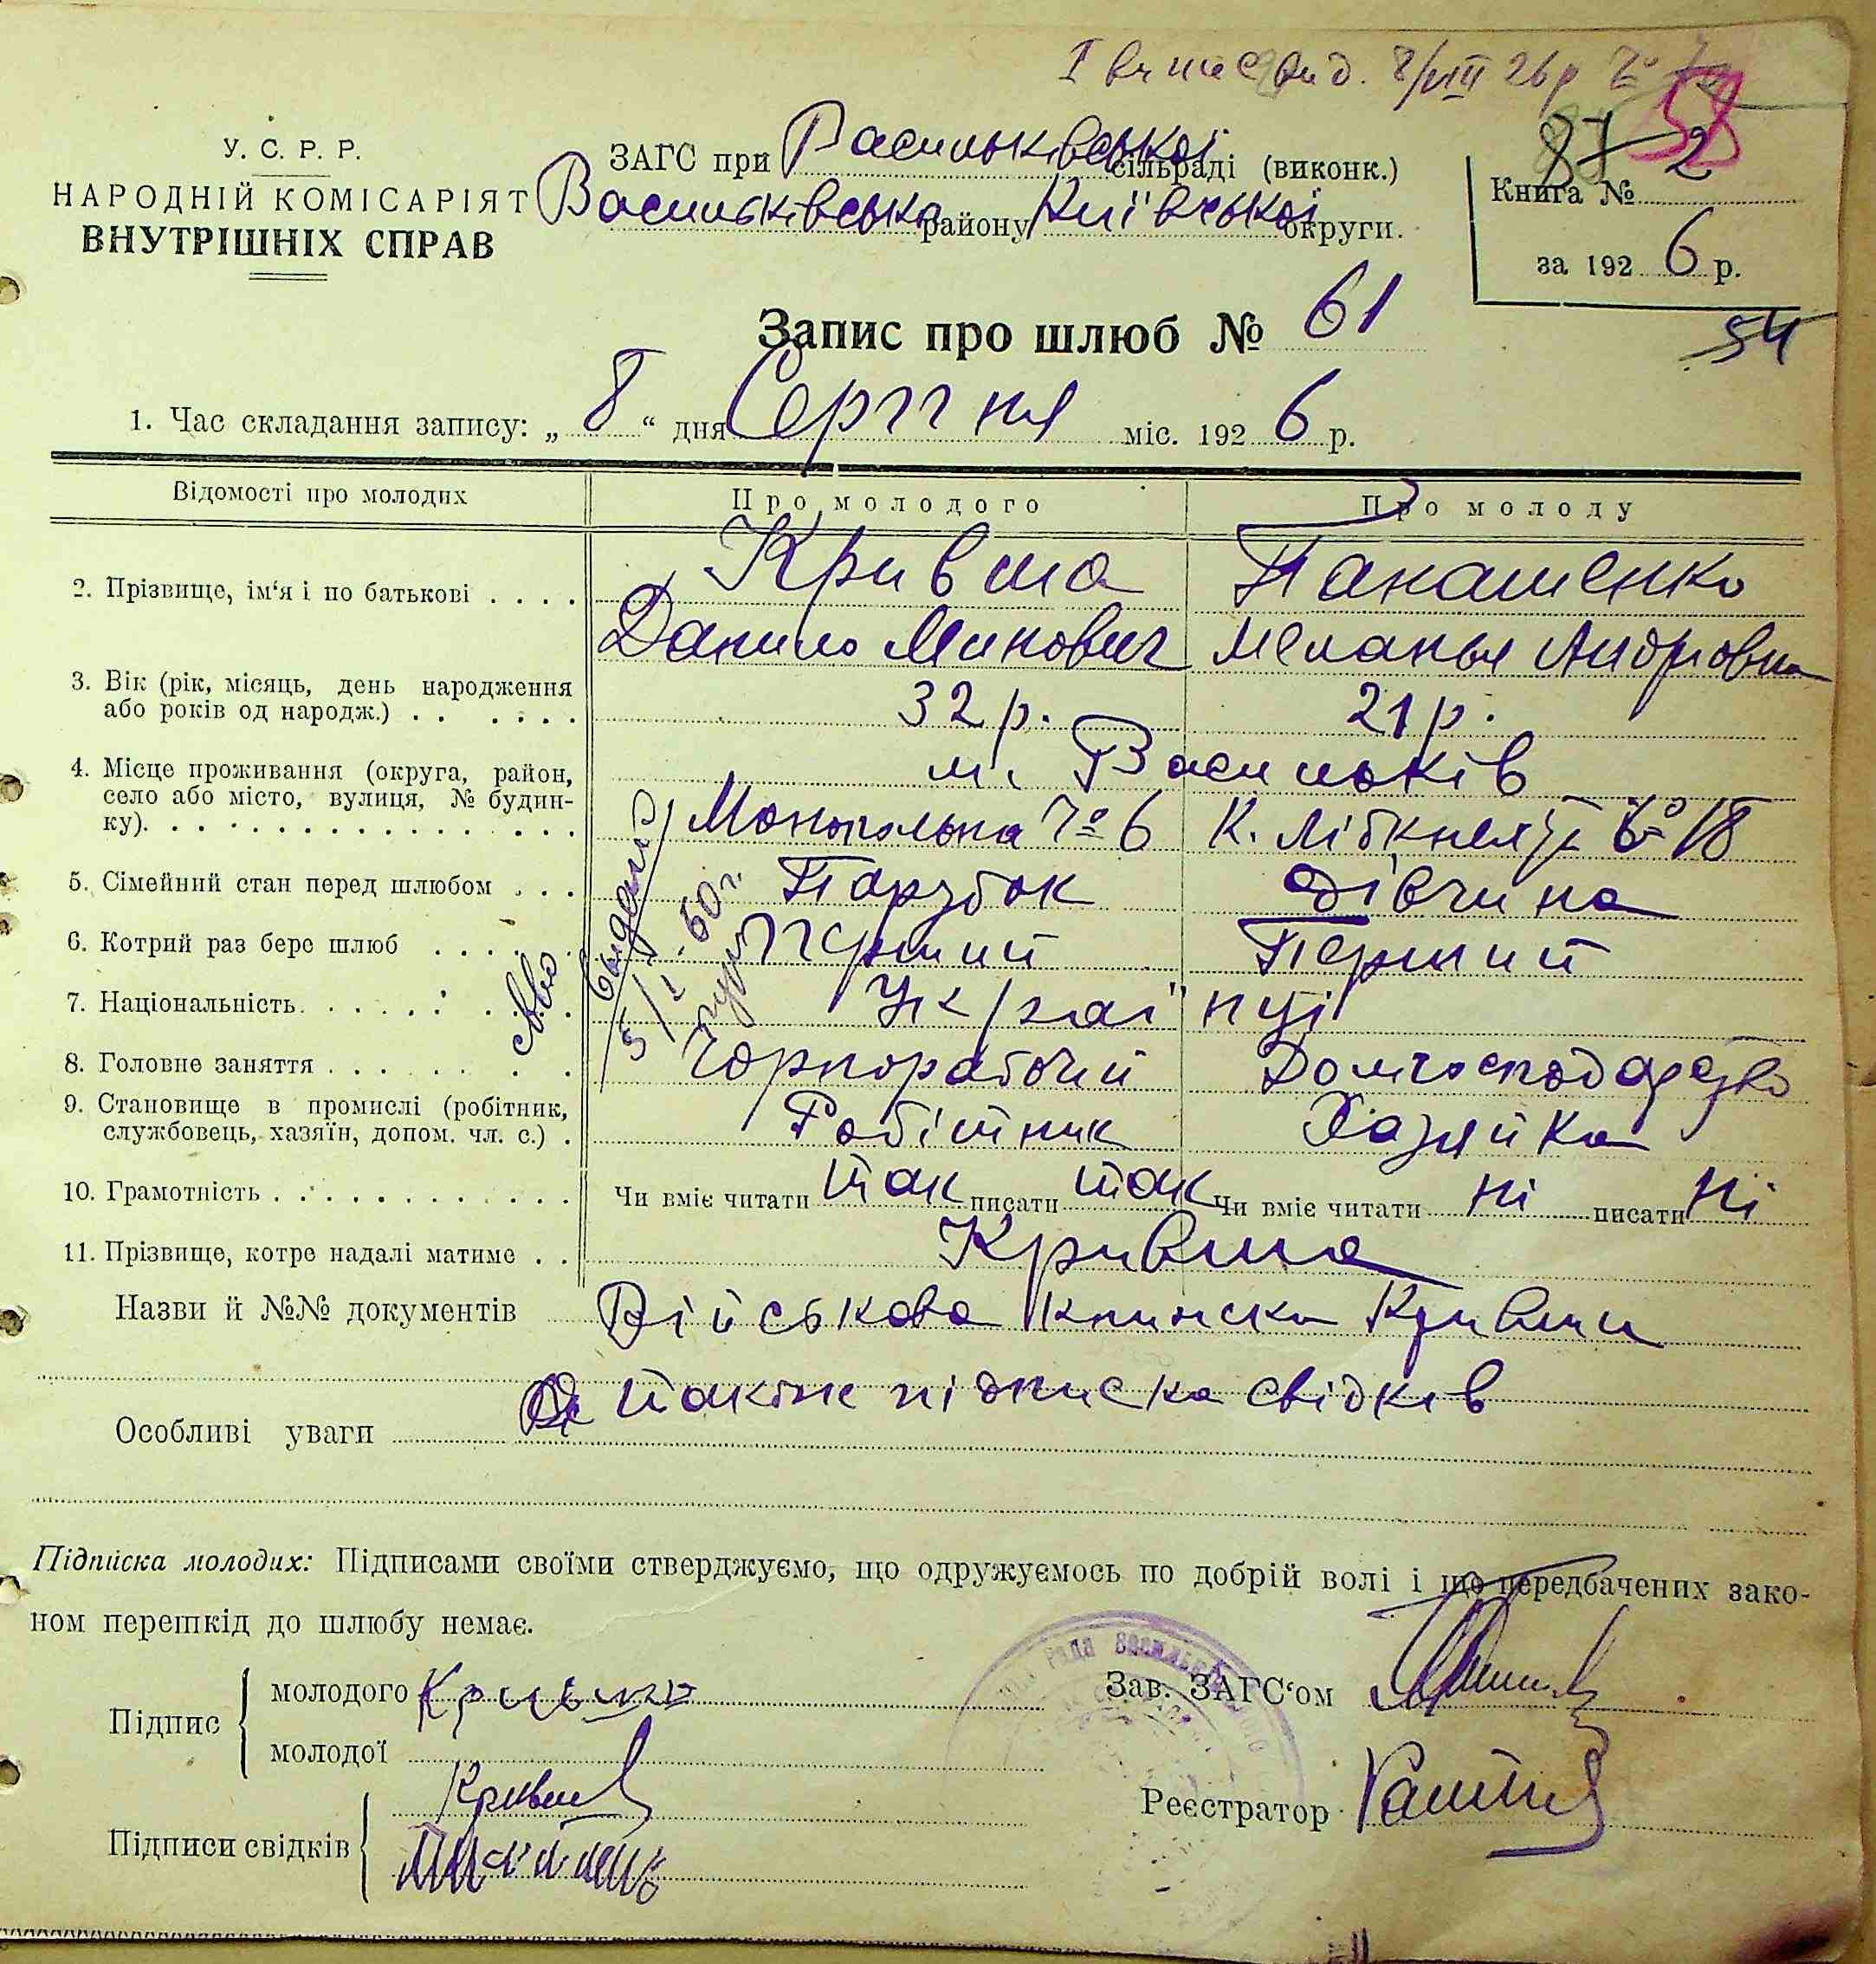 І випис вид. 8/VIII 26 р №
58
87 2
У. С. Р. Р.
НАРОДНІЙ КОМІСАРІЯТ
ВНУТРІШНІХ СПРАВ
ЗАГС при Васильківської сільраді (виконк.)
Васильківська району Київської округи.
Книга №
за 1926 р.
Запис про шлюб № 61
54
1. Час складання запису: „ 8 “ дня Серпня міс. 1926 р.
Відомості про молодих Про молодого Про молоду
2. Прізвище, ім‘я і по батькові . . . . Кривша Панашенко
Данило Минович Меланья Андріовна
3. Вік (рік, місяць, день народження
або років од народж.) . . . . . . 32 р. 21 р.
4. Місце проживання (округа, район, м. Васильків
село або місто, вулиця, № будин-
ку). . . . . . . . . . . . . . . . Монопольна № 6 К. Лібкнехта № 18
5. Сімейний стан перед шлюбом . . . Парубок Дівчина
6. Котрий раз бере шлюб . . . . . Перший Перший
7. Національність. . . . . . . . . . Українці
8. Головне заняття . . . . . . . . . Чорноробочий Домгосподарство
9. Становище в промислі (робітник,
службовець, хазяїн, допом. чл. с.) . Робітник Хазяйка
св-во выдано
5/I 60 г.
10. Грамотність . . . . . . . . . . . Чи вміє читати так писати так Чи вміє читати ні писати ні
11. Прізвище, котре надалі матиме . . Кривша
Назви й №№ документів Військова книжка Кривши
також підписка свідків
Особливі уваги
Підписка молодих: Підписами своїми стверджуємо, що одружуємось по добрій волі і що передбачених зако-
ном перешкід до шлюбу немає.
Підпис
молодого Кривша
молодої
Зав. ЗАГС‘ом
Підписи свідків
Реєстратор